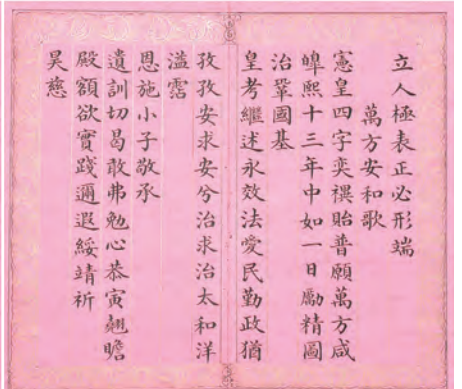 立人極表正必形端
萬方安和歌
憲皇四字奕禩貽普願萬方咸
皡熙十三年中如一日勵精圖
治鞏國基
皇考繼述永效法愛民勤政猶
孜孜安求安兮治求治太和洋
溢霑
恩施小子敬承
遺訓切曷敢弗勉心恭寅翹瞻
殿額欲實踐邇遐綏靖祈
昊慈